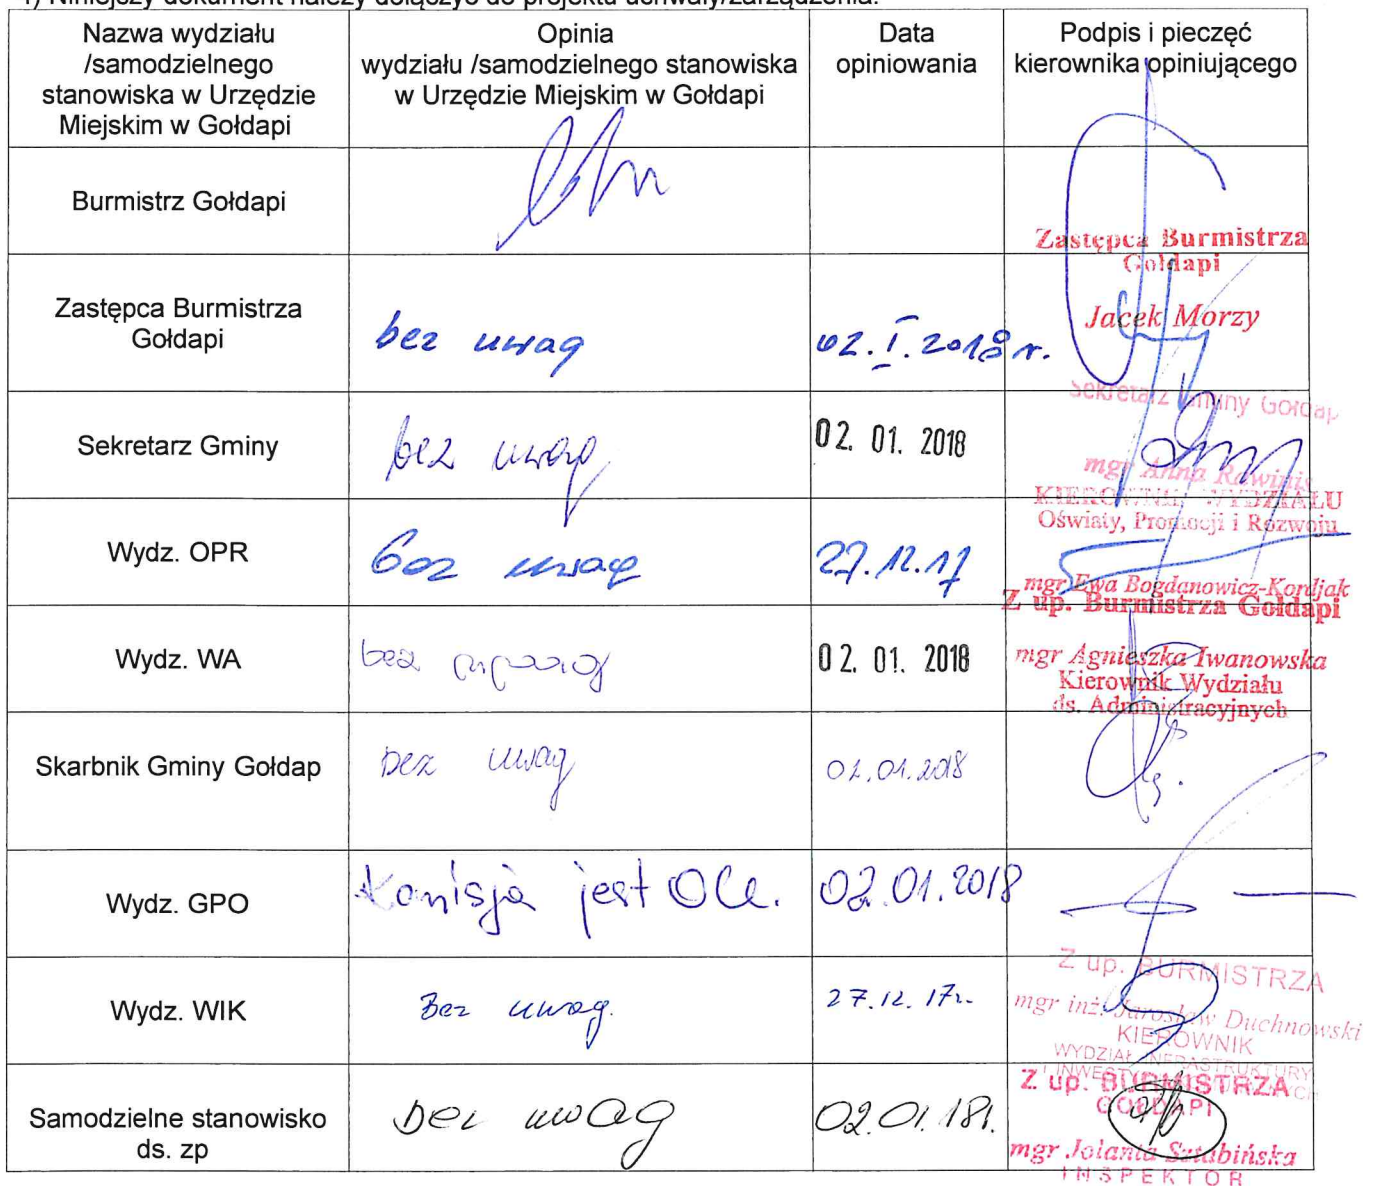 1) Niniejszy dokument należy dołączyć do projektu uchwały/zarządzenia.
Nazwa wydziału
/samodzielnego
stanowiska w Urzędzie
Miejskim w Gołdapi
Opinia
wydziału /samodzielnego stanowiska
w Urzędzie Miejskim w Gołdapi
Data
opiniowania
Podpis i pieczęć
kierownika opiniującego
Burmistrz Gołdapi
Zastępca Burmistrza
Gołdapi
Jacek Morzy
Zastępca Burmistrza
Gołdapi
bez uwag
02.I.2018 r.
Sekretarz Gminy Gołdap
mgr Anna Rawinis
Sekretarz Gminy
bez uwag
02. 01. 2018
KIEROWNIK WYDZIAŁU
Oświaty, Promocji i Rozwoju
mgr Ewa Bogdanowicz-Kordjak
Wydz. OPR
bez uwag
27.12.17
Z up. Burmistrza Gołdapi
mgr Agnieszka Iwanowska
Kierownik Wydziału
ds. Administracyjnych
Wydz. WA
bez uwag
02. 01. 2018
Skarbnik Gminy Gołdap
bez uwag
02.01.2018
Wydz. GPO
Komisja jest
02.01.2018
Wydz. WIK
Bez uwag.
27.12.17r.
Z up. BURMISTRZA
mgr inż. Jarosław Duchnowski
KIEROWNIK
WYDZIAŁ INFRASTRUKTURY
Samodzielne stanowisko
ds. zp
bez uwag
02.01.18r.
Z up. BURMISTRZA
GOŁDAPI
mgr Jolanta Sztabińska
INSPEKTOR